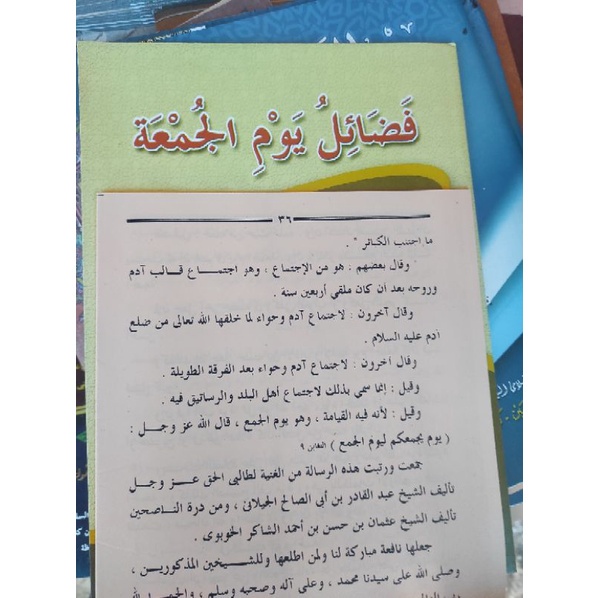 فَضَائِلُ يَوْمِ الْجُمْعَة
٣٦
ما اجتنبت الكبائر " .
وقال بعضهم : هو من الإجتماع ، وهو اجتماع قالب آدم
وروحه بعد أن كان ملقي أربعين سنة .
وقال آخرون : لاجتماع آدم وحواء لما خلقها الله تعالى من ضلع
آدم عليه السلام .
وقال آخرون : لاجتماع آدم وحواء بعد الفرقة الطويلة .
وقيل : إنما سمي بذلك لاجتماع أهل البلد والرساتيق فيه .
وقيل : لأنه فيه القيامة ، وهو يوم الجمع ، قال الله عز وجل :
( يوم يجمعكم ليوم الجمع ) التغابن ٩
جمعت ورتبت هذه الرسالة من الغنية لطالبي الحق عز وجل
تأليف الشيخ عبد القادر بن أبي الصالح الجيلاني ، ومن درة الناصحين
تأليف الشيخ عثمان بن حسن بن أحمد الشاكر الخوبوي .
جعلها نافعة مباركة لنا ولمن اطلعها وللشيخين المذكورين ،
وصلى الله على سيدنا محمد ، وعلى آله وصحبه وسلم ، والحمد لله